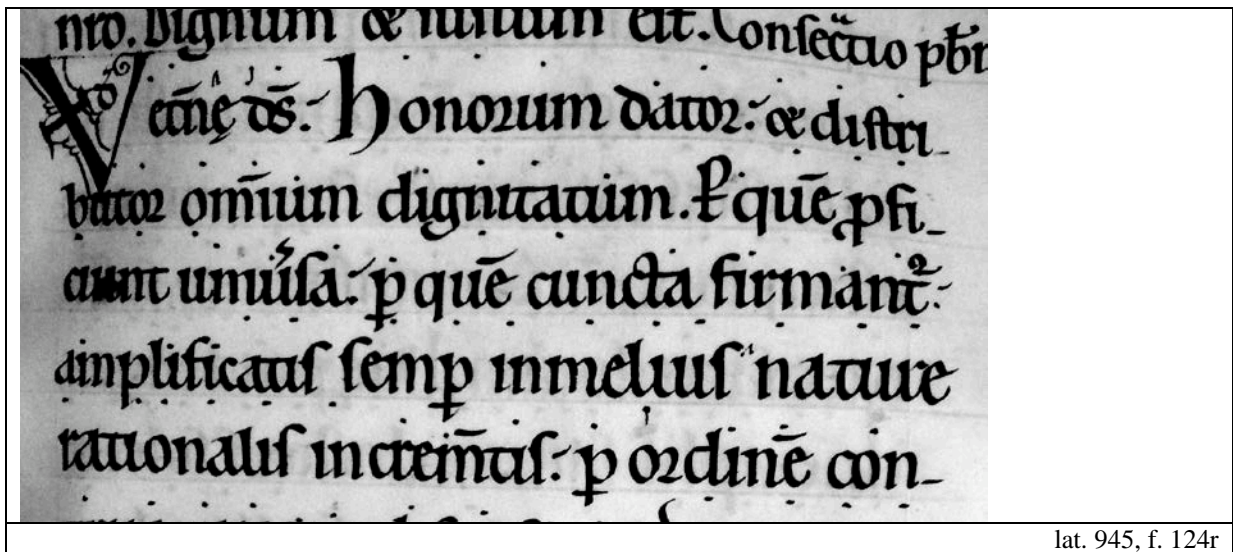 nr̄o. Dignum & iustum est. Consec̄atio pb̄r
V et̄nę d̄s. Honorum dator. & distri-
butor om̄ium dignitatum. P quē ꝓfi-
ciunt uniũsa. ꝑ quē cuncta firmant᷑.
amplificatis semꝑ inmelius nature
rationalis increm̄tis. ꝑ ordinē con-
lat. 945, f. 124r